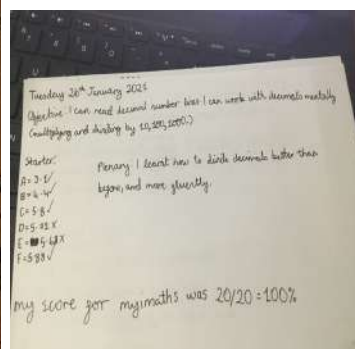 Tuesday 26th January 2021
Objective: I can read decimal number lines I can work with decimals mentally
(multiplying and dividing by 10,100,1000.)
Starter:
A=3.1✓
B=4.4✓
C=5.8✓
D=5.81 X
E=5.68X
F=5.88✓
Plenary I learnt how to divide decimals better than
before, and more fluently.
my score for myimaths was 20/20=100%